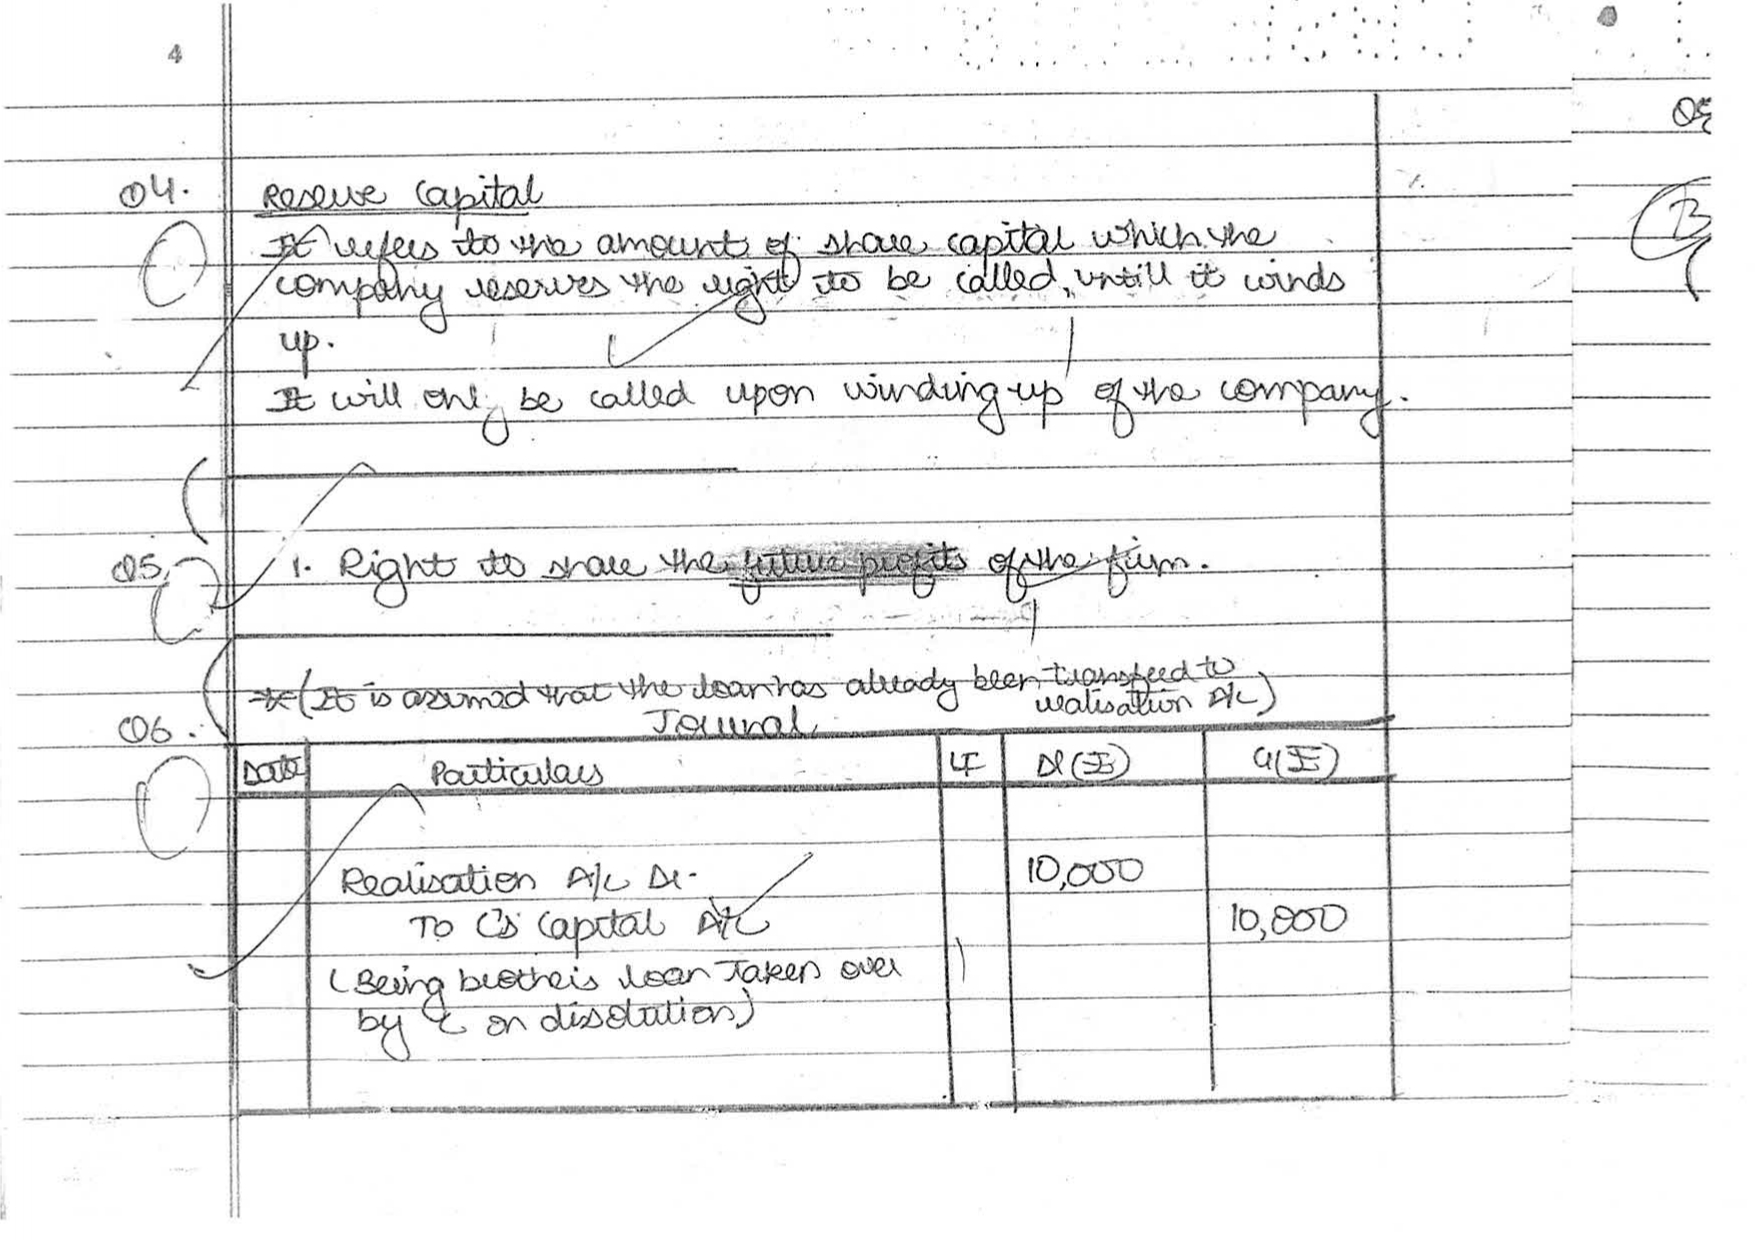 4
Q4.
Reserve Capital
It refers to the amount of share capital which the
company reserves the right to be called, untill it winds
up.
It will only be called upon winding-up of the company.
Q5.
1. Right to share the future profits of the firm.
* (It is assumed that the loan has already been transfeed to
realisation A/c)
Q6.
Journal
Date Particulars LF Dr (₹) Cr (₹)
Realisation A/c Dr. 10,000
To C's Capital A/c 10,000
(Being brother's loan Taken over
by C on dissolution)